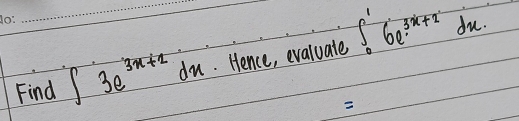 No:
Find ∫ 3e^{3x+2} dx. Hence, evaluate ∫_0^1 6e^{3x+2} dx.
=